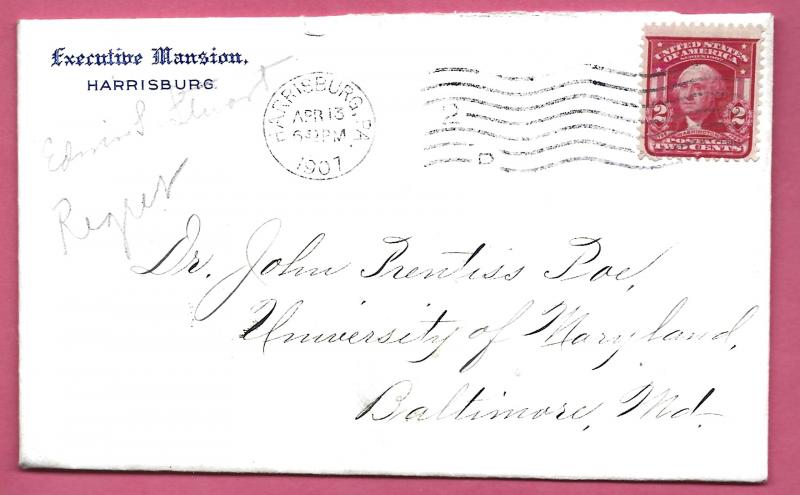 Executive Mansion,
HARRISBURG.
Edwin S. Stuart
Regret
HARRISBURG, PA.
APR 13
PM
1907
2
D
UNITED STATES
OF AMERICA
2 2
POSTAGE
TWO CENTS
Dr. John Prentiss Poe,
University of Maryland,
Baltimore, Md.